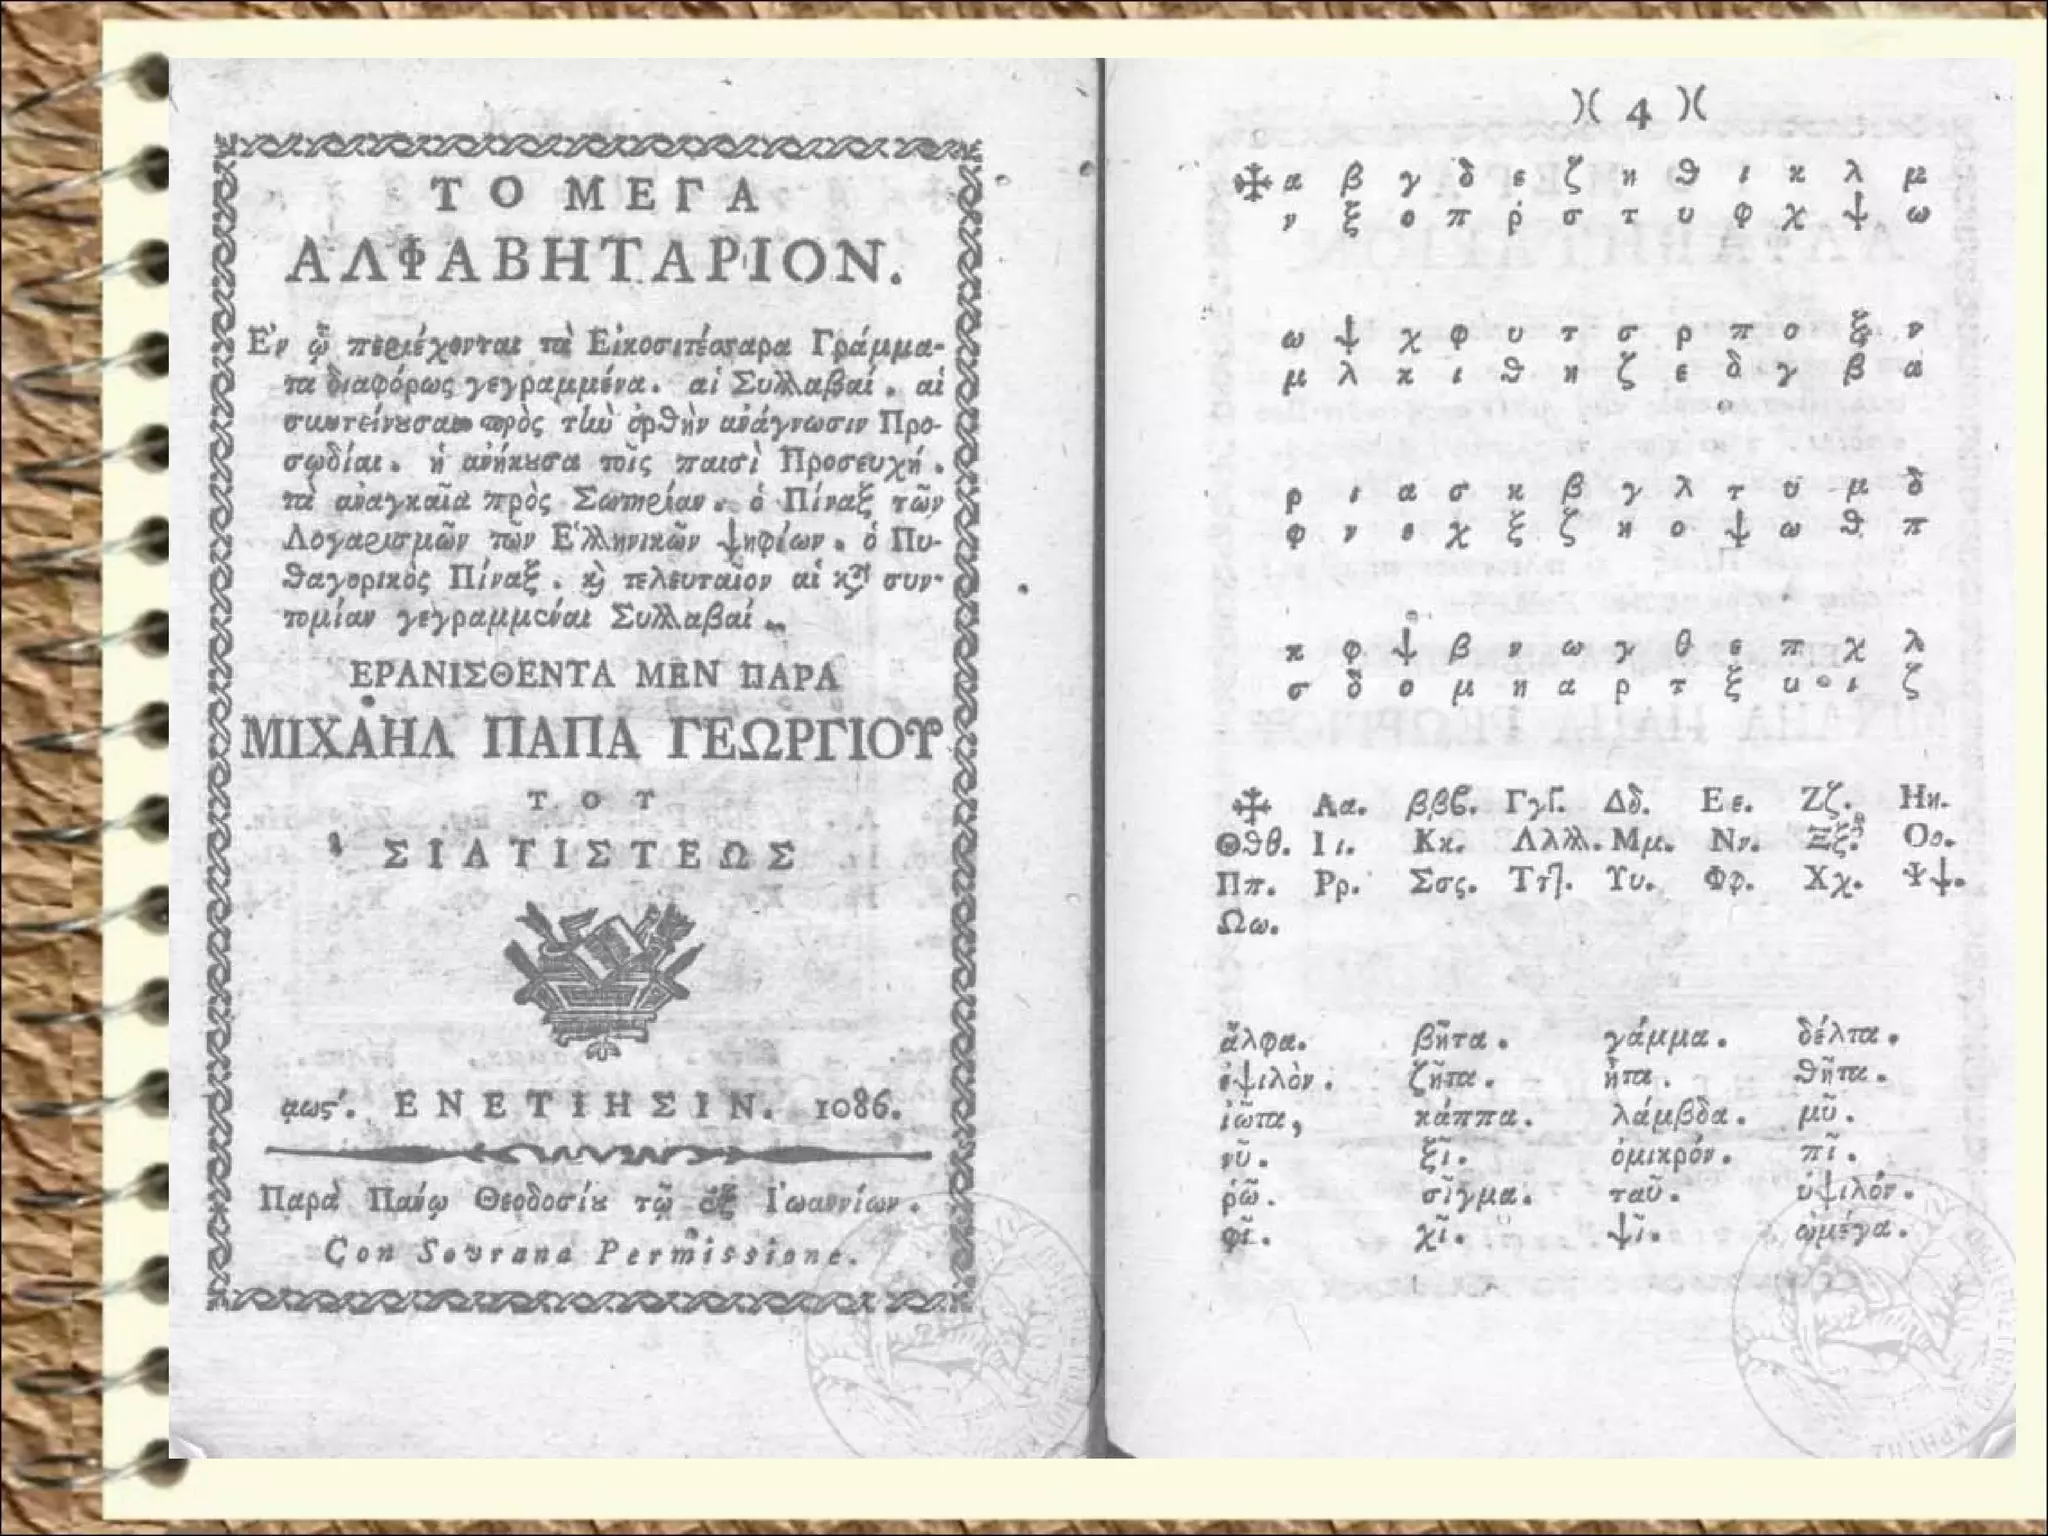 ΤΟ ΜΕΓΑ
ΑΛΦΑΒΗΤΑΡΙΟΝ.
Εν ᾧ περιέχονται τὰ Εἰκοσιτέσσαρα Γράμμα-
τα διαφόρως γεγραμμένα. αἱ Συλλαβαί. αἱ
συντείνουσαι πρὸς τὴν ὀρθὴν ἀνάγνωσιν Προ-
σῳδίαι. ἡ ἀνήκουσα τοῖς παισὶ Προσευχή.
τὰ ἀναγκαῖα πρὸς Σωτηρίαν. ὁ Πίναξ τῶν
Λογαρισμῶν τῶν Ἑλληνικῶν ψηφίων. ὁ Πυ-
θαγορικὸς Πίναξ. καὶ τελευταῖον αἱ κατὰ συν-
τομίαν γεγραμμέναι Συλλαβαί.
ΕΡΑΝΙΣΘΕΝΤΑ ΜΕΝ ΠΑΡΑ
ΜΙΧΑΗΛ ΠΑΠΑ ΓΕΩΡΓΙΟΥ
ΤΟΥ
ΣΙΑΤΙΣΤΕΩΣ
αως'. ΕΝΕΤΙΗΣΙΝ. 1086.
Παρὰ Πάνῳ Θεοδοσίου τῷ ἐξ Ἰωαννίων.
Con Sovrana Permissione.
)( 4 )(
✠ α β γ δ ε ζ η ϑ ι κ λ μ
ν ξ ο π ρ σ τ υ φ χ ψ ω
ω ψ χ φ υ τ σ ρ π ο ξ ν
μ λ κ ι ϑ η ζ ε δ γ β α
ρ ι α σ κ β γ λ τ υ μ δ
φ ν ε χ ξ ζ η ο ψ ω ϑ π
κ φ ψ β ν ω γ θ ε π χ λ
σ δ ο μ η α ρ τ ξ υ ι ζ
✠ Αα. βββ. ΓγΓ. Δδ. Εε. Ζζ. Ηη.
Θϑθ. Ιι. Κκ. Λλλλ. Μμ. Νν. Ξξ. Οο.
Ππ. Ρρ. Σσς. Ττ7. Υυ. Φφ. Χχ. Ψψ.
Ωω.
ἄλφα. βῆτα. γάμμα. δέλτα.
ἐψιλὸν. ζῆτα. ἦτα. θῆτα.
ἰῶτα, κάππα. λάμβδα. μῦ.
νῦ. ξῖ. ὀμικρόν. πῖ.
ῥῶ. σῖγμα. ταῦ. ὑψιλόν.
φῖ. χῖ. ψῖ. ὠμέγα.